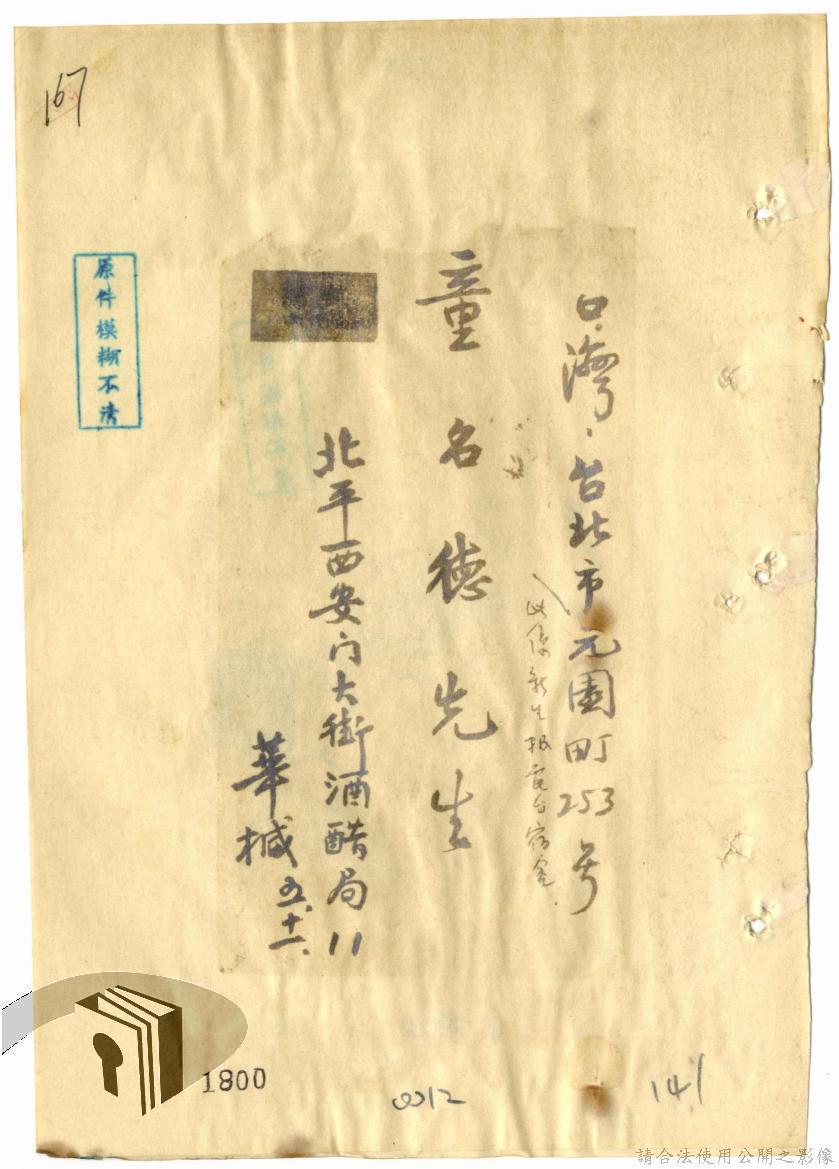 167
台灣．台北市元園町253号
此係新生報電台宿舍．
童名德先生
北平西安门大街酒醋局11
華棫 五．十一．
原件模糊不清
1800
0012
141
請合法使用公開之影像